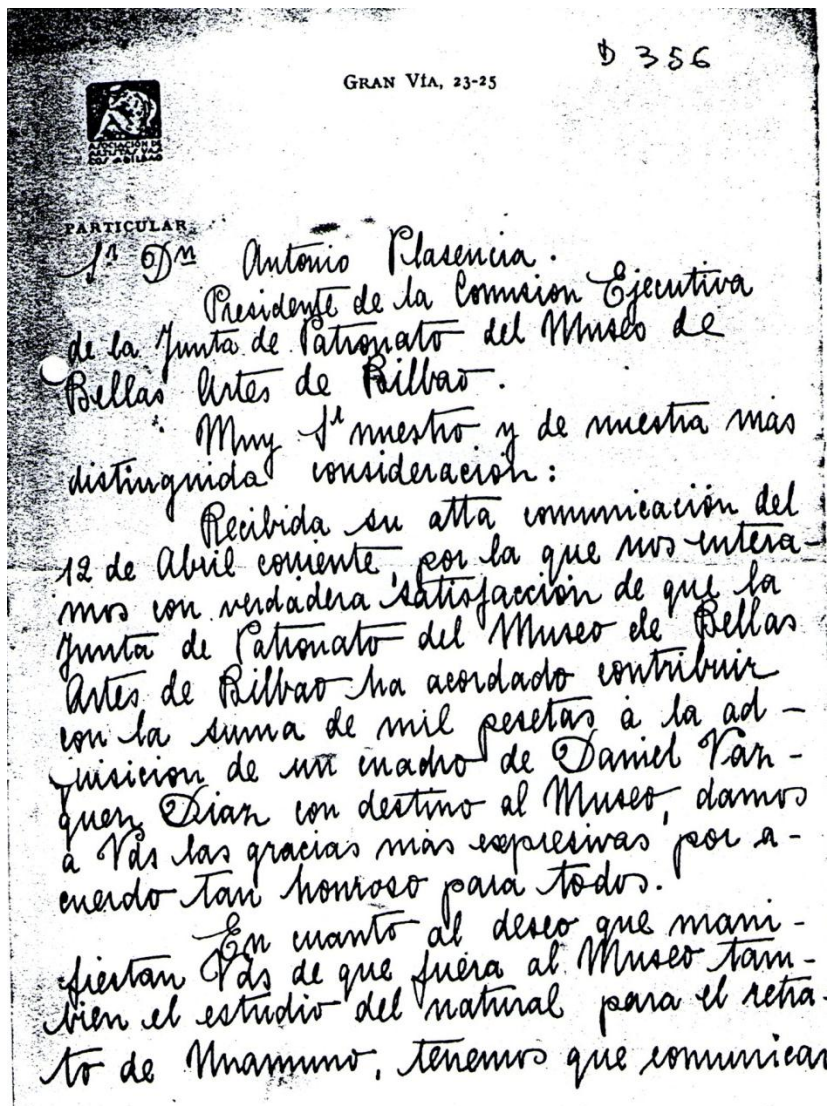 D 356
GRAN VÍA, 23-25
ASOCIACIÓN DE
ARTISTAS VAS
COS BILBAO
PARTICULAR
Sr Dn Antonio Plasencia.
Presidente de la Comision Ejecutiva
de la Junta de Patronato del Museo de
Bellas Artes de Bilbao.
Muy Sr nuestro y de nuestra más
distinguida consideración:
Recibida su atta comunicación del
12 de Abril corriente, por la que nos entera-
mos con verdadera satisfacción de que la
Junta de Patronato del Museo de Bellas
Artes de Bilbao ha acordado contribuir
con la suma de mil pesetas à la ad-
quisicion de un cuadro de Daniel Vaz-
quez Diaz con destino al Museo, damos
a Vds las gracias más expresivas por a-
cuerdo tan honroso para todos.
En cuanto al deseo que mani-
fiestan Vds de que fuera al Museo tam-
bien el estudio del natural para el retra-
to de Unamuno, tenemos que comunicar